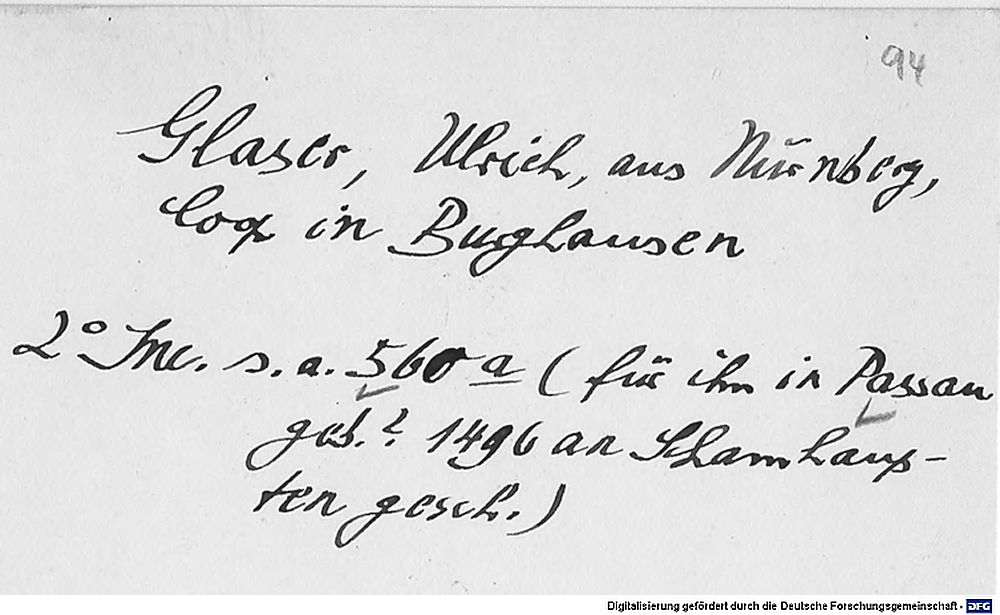 94
Glaser, Ulrich, aus Nürnberg,
in Burghausen
2° Inc. s. a. 560 a (für ihn in Passau
geb.? 1496 an Schamhaup-
ten gesch.)
Digitalisierung gefördert durch die Deutsche Forschungsgemeinschaft - DFG